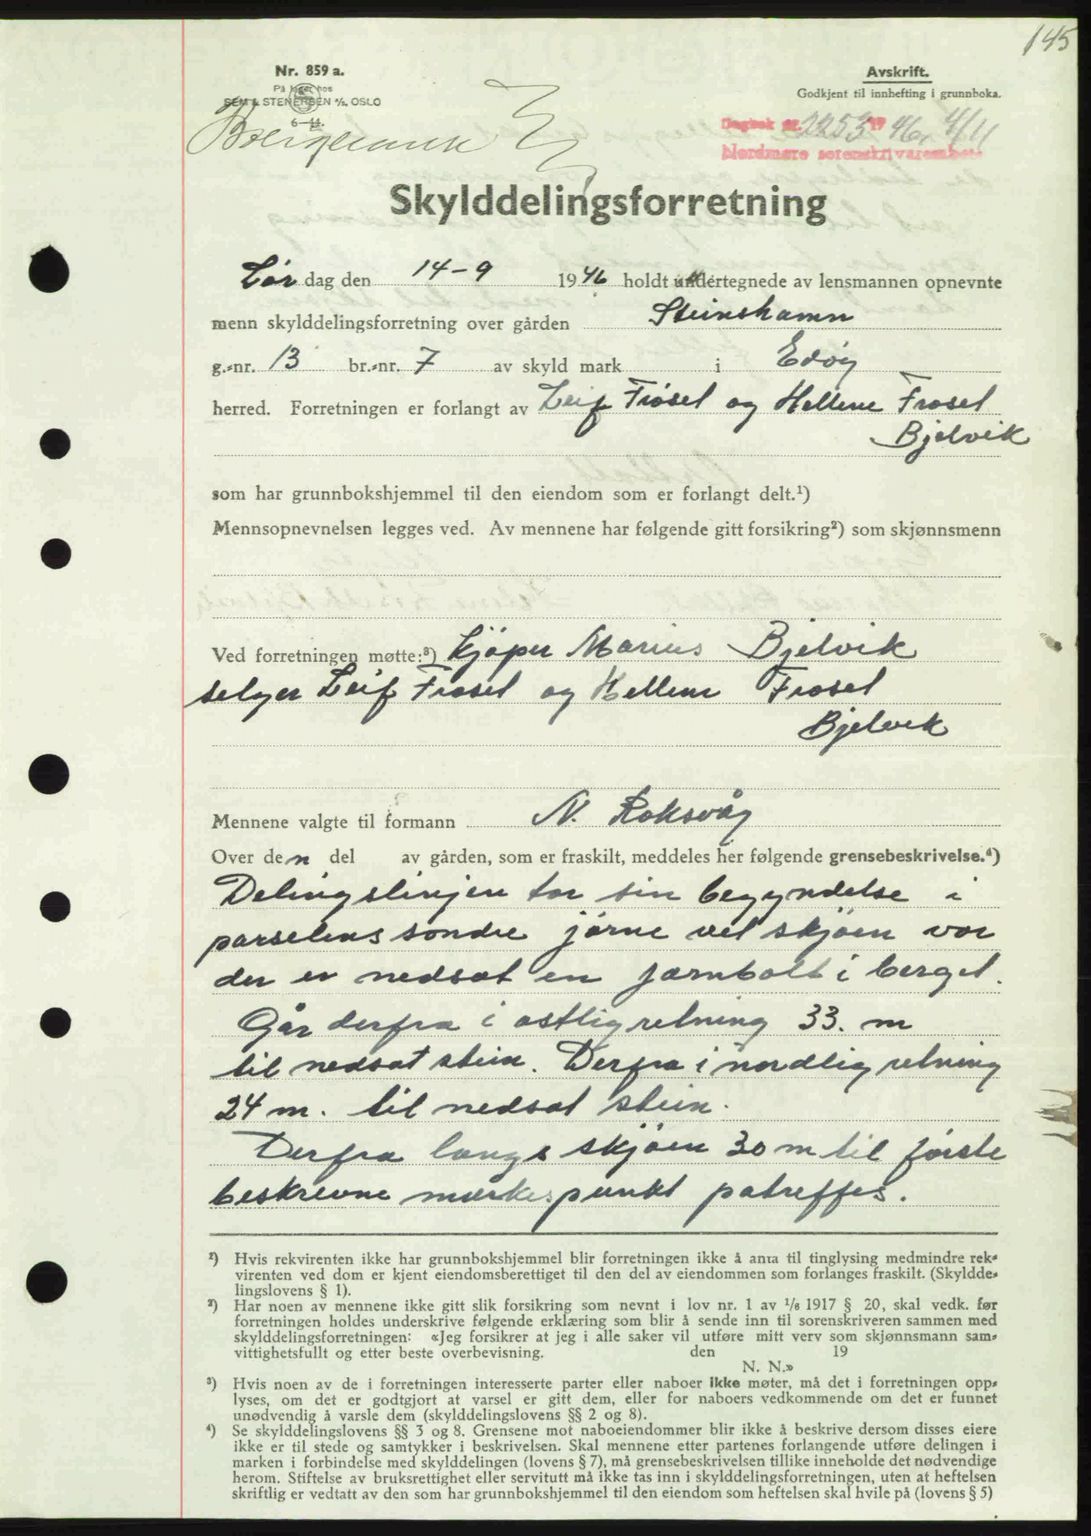 145
Nr. 859 a.
På lager hos
SEM & STENERSEN A/S, OSLO
6-44.
Avskrift.
Godkjent til innhefting i grunnboka.
Dagbok nr. 2253 1946, 4/11
Nordmøre sorenskriverembete
Skylddelingsforretning
Lør dag den 14-9 1946 holdt undertegnede av lensmannen opnevnte
menn skylddelingsforretning over gården Steinshamn
g.-nr. 13 br.-nr. 7 av skyld mark i Edøy
herred. Forretningen er forlangt av Leif Frøsel og Hellene Frøsel
Bjelvik
som har grunnbokshjemmel til den eiendom som er forlangt delt.¹)
Mennsopnevnelsen legges ved. Av mennene har følgende gitt forsikring²) som skjønnsmenn
Ved forretningen møtte:³) kjøper Marius Bjelvik
selger Leif Frøsel og Hellene Frøsel
Bjelvik
Mennene valgte til formann N. Roksvåg
Over den del av gården, som er fraskilt, meddeles her følgende grensebeskrivelse.⁴)
Delingslinjen tar sin begyndelse i
parselens søndre jørne vel skjøen vor
der er nedsat en jærnbolt i berget.
Går derfra i østlig retning 33. m
til nedsat stein. Derfra i nordlig retning
24 m. til nedsat stein.
Derfra langs skjøen 30 m til første
beskrevne merkespunkt patreffes.
²) Hvis rekvirenten ikke har grunnbokshjemmel blir forretningen ikke å anta til tinglysing medmindre rek-
virenten ved dom er kjent eiendomsberettiget til den del av eiendommen som forlanges fraskilt. (Skyldde-
lingslovens § 1).
²) Har noen av mennene ikke gitt slik forsikring som nevnt i lov nr. 1 av 1/6 1917 § 20, skal vedk. før
forretningen holdes underskrive følgende erklæring som blir å sende inn til sorenskriveren sammen med
skylddelingsforretningen: «Jeg forsikrer at jeg i alle saker vil utføre mitt verv som skjønnsmann sam-
vittighetsfullt og etter beste overbevisning. den 19
N. N.»
³) Hvis noen av de i forretningen interesserte parter eller naboer ikke møter, må det i forretningen opp-
lyses, om det er godtgjort at varsel er gitt dem, eller for naboers vedkommende om det er funnet
unødvendig å varsle dem (skylddelingslovens §§ 2 og 8).
⁴) Se skylddelingslovens §§ 3 og 8. Grensene mot naboeiendommer blir ikke å beskrive dersom disses eiere
ikke er til stede og samtykker i beskrivelsen. Skal mennene etter partenes forlangende utføre delingen i
marken i forbindelse med skylddelingen (lovens § 7), må grensebeskrivelsen tillike inneholde det nødvendige
herom. Stiftelse av bruksrettighet eller servitutt må ikke tas inn i skylddelingsforretningen, uten at heftelsen
skriftlig er vedtatt av den som har grunnbokshjemmel til den eiendom som heftelsen skal hvile på (lovens § 5)